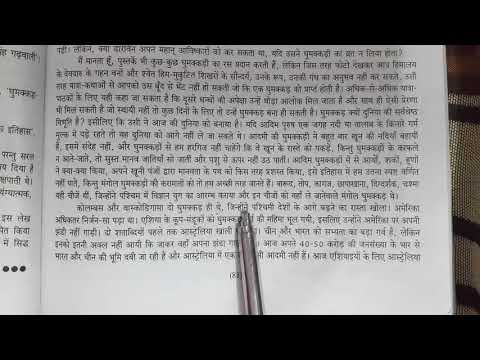 पड़ी। लेकिन, क्या डारविन अपने महान् आविष्कारों को कर सकता था, यदि उसने घुमक्कड़ी का व्रत न लिया होता?
मैं मानता हूँ, पुस्तकें भी कुछ-कुछ घुमक्कड़ी का रस प्रदान करती हैं, लेकिन जिस तरह फोटो देखकर आप हिमालय
के देवदार के गहन वनों और श्वेत हिम-मुकुटित शिखरों के सौन्दर्य, उनके रूप, उनकी गंध का अनुभव नहीं कर सकते, उसी
तरह यात्रा-कथाओं से आपको उस बूँद से भेंट नहीं हो सकती जो कि एक घुमक्कड़ को प्राप्त होती है। अधिक-से-अधिक यात्रा-
पाठकों के लिए यही कहा जा सकता है कि दूसरे अन्धों की अपेक्षा उन्हें थोड़ा आलोक मिल जाता है और साथ ही ऐसी प्रेरणा
भी मिल सकती है जो स्थायी नहीं तो कुछ दिनों के लिए तो उन्हें घुमक्कड़ बना ही सकती है। घुमक्कड़ क्यों दुनिया की सर्वश्रेष्ठ
विभूति है? इसीलिए कि उसी ने आज की दुनिया को बनाया है। यदि आदिम पुरुष एक जगह नदी या तालाब के किनारे गर्म
मुल्क में पड़े रहते तो वह दुनिया को आगे नहीं ले जा सकते थे। आदमी की घुमक्कड़ी ने बहुत बार खून की नदियाँ बहायी
हैं, इसमें संदेह नहीं, और घुमक्कड़ों से हम हरगिज नहीं चाहेंगे कि वे खून के रास्ते को पकड़ें, किन्तु घुमक्कड़ों के काफले
न आते-जाते, तो सुस्त मानव जातियाँ सो जातीं और पशु से ऊपर नहीं उठ पातीं। आदिम घुमक्कड़ों में से आर्यों, शकों, हूणों
ने क्या-क्या किया, अपने खूनी पंथों द्वारा मानवता के पथ को किस तरह प्रशस्त किया, इसे इतिहास में हम उतना स्पष्ट वर्णित
नहीं पाते, किन्तु मंगोल घुमक्कड़ों की करामातों को तो हम अच्छी तरह जानते हैं। बारूद, तोप, कागज, छापाखाना, दिग्दर्शक, चश्मा
यही चीजें थीं, जिन्होंने पश्चिम में विज्ञान युग का आरम्भ कराया और इन चीजों को वहाँ ले जानेवाले मंगोल घुमक्कड़ थे।
कोलम्बस और वास्कोडिगामा दो घुमक्कड़ ही थे, जिन्होंने पश्चिमी देशों के आगे बढ़ने का रास्ता खोला। अमेरिका
अधिकतर निर्जन-सा पड़ा था। एशिया के कूप-मंडूकों को घुमक्कड़ की महिमा भूल गयी, इसलिए उन्होंने अमेरिका पर अपनी
झंडी नहीं गाड़ी। दो शताब्दियों पहले तक आस्ट्रेलिया खाली था। चीन और भारत को सभ्यता का बड़ा गर्व है, लेकिन
इनको इतनी अक्ल नहीं आयी कि जाकर वहाँ अपना झंडा गाड़ आते। आज अपने 40-50 करोड़ की जनसंख्या के भार से
भारत और चीन की भूमि दबी जा रही है और आस्ट्रेलिया में एक करोड़ भी आदमी नहीं हैं। आज एशियाइयों के लिए आस्ट्रेलिया
सिंह गढ़वाली'
'घुमक्कड़-
इतिहास'
परन्तु सरल
दिया है
इस लेख
पर घर
में सिद्ध